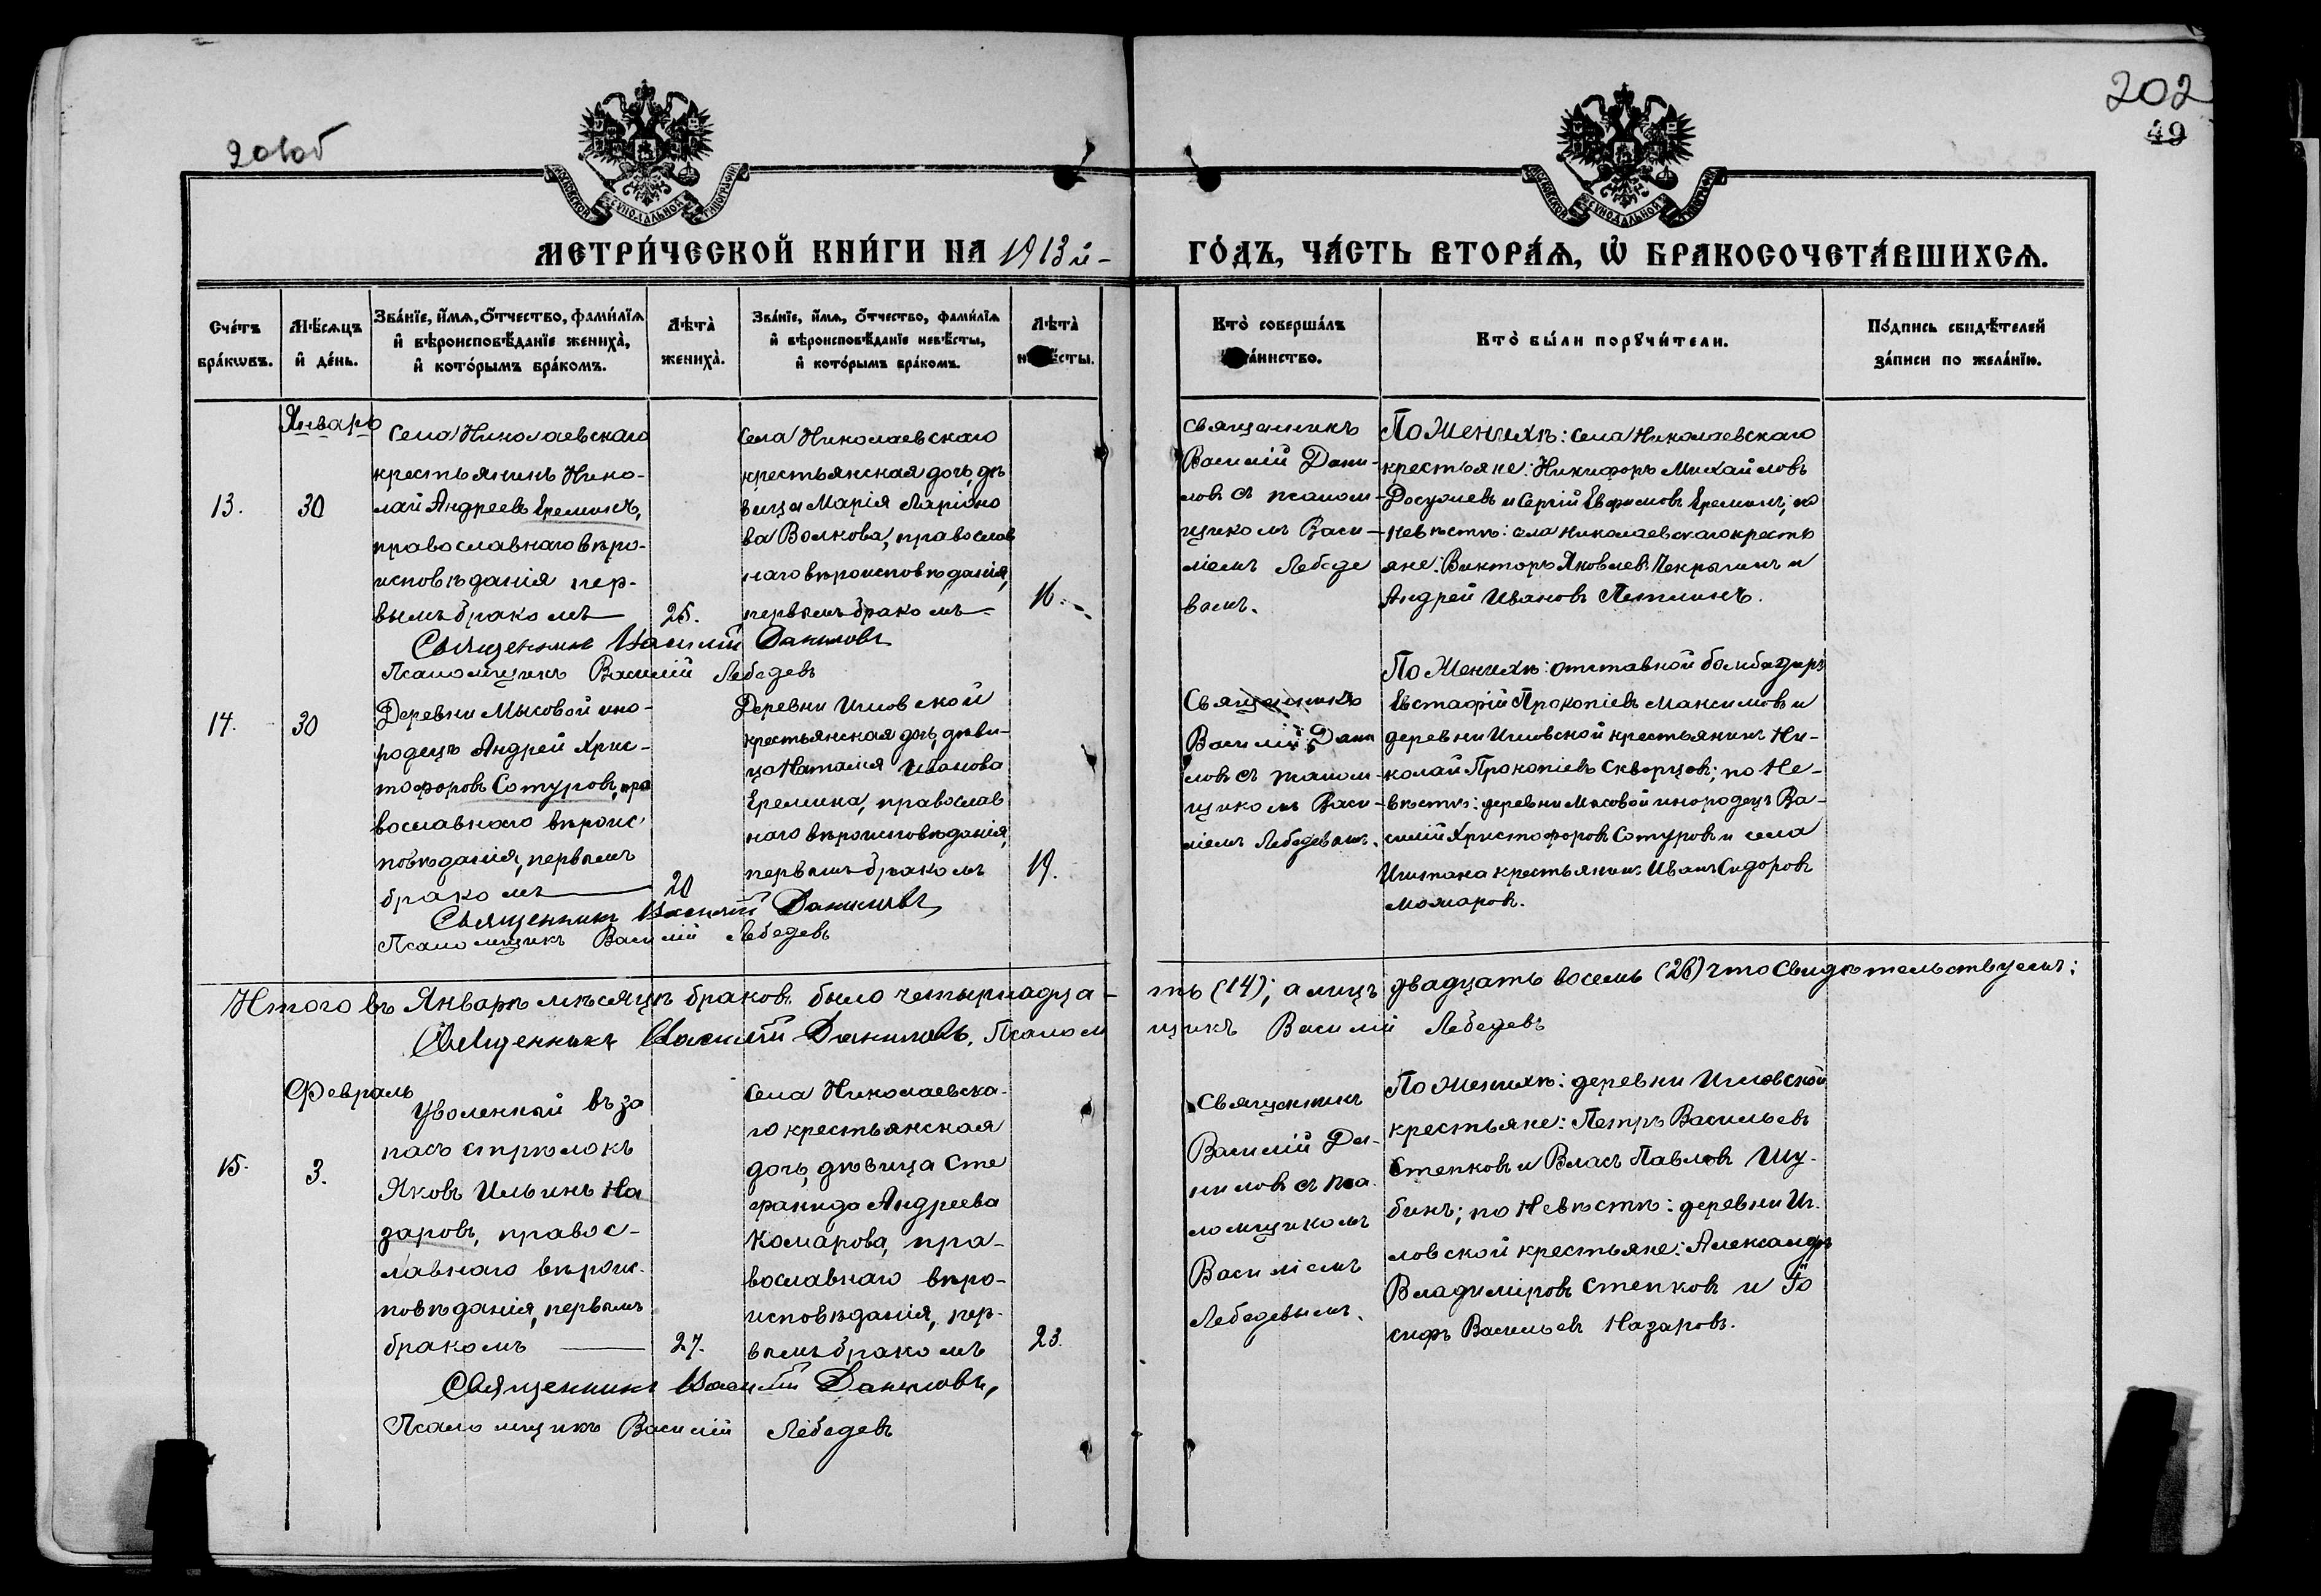 201об
202
49
МОСКОВСКОЙ СѴНОДАЛЬНОЙ ТИПОГРАФІИ
МОСКОВСКОЙ СѴНОДАЛЬНОЙ ТИПОГРАФІИ
МЕТРИ́ЧЕСКОЙ КНИ́ГИ НА 1913й-
ГО́ДЪ, ЧА́СТЬ ВТОРА́Ѧ, Ѽ БРАКОСОЧЕТА́ВШИХСѦ.
Сче́тъ
бра́кѡвъ.
Мѣ́сѧцъ
и҆ де́нь.
Зва́нїе, и҆́мѧ, ѻ҆́тчество, фамилїѧ
и҆ вѣроисповѣ́данїе жениха̀,
и҆ кото́рымъ бра́комъ.
Лѣта̀
жениха̀.
Зва́нїе, и҆́мѧ, ѻ҆́тчество, фамилїѧ
и҆ вѣроисповѣ́данїе невѣ́сты,
и҆ кото́рымъ бра́комъ.
Лѣта̀
невѣ́сты.
Кто̀ соверша́лъ
та́инство.
Кто̀ бы́ли порꙋчи́тели.
По́дпись свидѣ́телей
за́писи по жела́нїю.
Январь
13.
30
Села Николаевскаго
крестьянинъ Нико-
лай Андреевъ Ереминъ,
православнаго вѣро-
исповѣданія пер-
вымъ бракомъ
25.
Села Николаевскаго
крестьянская дочь, дѣ
вица Марія Ларіоно
ва Волкова, православ
наго вѣроисповѣданія,
первымъ бракомъ
16.
Священникъ
Василій Дани-
ловъ съ псалом-
щикомъ Васи-
ліемъ Лебеде
вымъ.
По Женихѣ: села Николаевскаго
крестьяне: Никифоръ Михайловъ
и Сергій Евфимовъ Ереминъ; по
Невѣстѣ: села Николаевскаго кресть
яне: Викторъ Яковлевъ и
Андрей Ивановъ
Священникъ Василій Даниловъ
Псаломщикъ Василій Лебедевъ
14.
30
Деревни Мысовой ино-
родецъ Андрей Хрис-
тофоровъ Сотуровъ, пра
вославнаго вѣроис
повѣданія, первымъ
бракомъ
20
Деревни Иловской
крестьянская дочь, дѣви-
ца Наталія Иванова
Еремина, православ
наго вѣроисповѣданія,
первымъ бракомъ
19.
Священникъ
Василій Дани
ловъ съ псалом-
щикомъ Васи-
ліемъ Лебедевымъ.
По Женихѣ: отставной бомбадиръ
Евстафій Прокопіевъ Максимовъ и
деревни Иловской крестьянинъ Ни-
колай Прокопіевъ Скворцовъ; по Не-
вѣстѣ: деревни Мысовой инородецъ Ва-
силій Христофоровъ Сотуровъ и села
крестьянинъ Иванъ Сидоровъ
Священникъ Василій Даниловъ
Псаломщикъ Василій Лебедевъ
Итого въ Январѣ мѣсяцѣ браковъ было четырнадца-
ть (14); а лицъ двадцать восемь (28) что свидѣтельствуемъ:
Священникъ Василій Даниловъ. Псалом
щикъ Василій Лебедевъ
Февраль
15.
3.
Уволенный въ за
пасъ стрѣлокъ
Яковъ Ильинъ На
заровъ, правос-
лавнаго вѣроис-
повѣданія, первымъ
бракомъ
27.
Села Николаевска-
го крестьянская
дочь, дѣвица Сте
фанида Андреева
Комарова, пра-
вославнаго вѣро-
исповѣданія, пер-
вымъ бракомъ
23.
Священникъ
Василій Да-
ниловъ съ пса-
ломщикомъ
Василіемъ
Лебедевымъ.
По Женихѣ: деревни Иловской
крестьяне: Петръ Васильевъ
Степковъ и Власъ Павловъ Шу-
бинъ; по Невѣстѣ: деревни И-
ловской крестьяне: Александръ
Владиміровъ Степковъ и Іо
сифъ Васильевъ Назаровъ.
Священникъ Василій Даниловъ,
Псаломщикъ Василій Лебедевъ